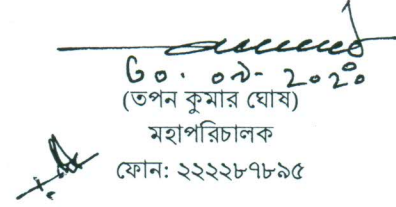 ৩০. ০৯- ২০২০
(তপন কুমার ঘোষ)
মহাপরিচালক
ফোন: ২২২২৮৭৮৯৫